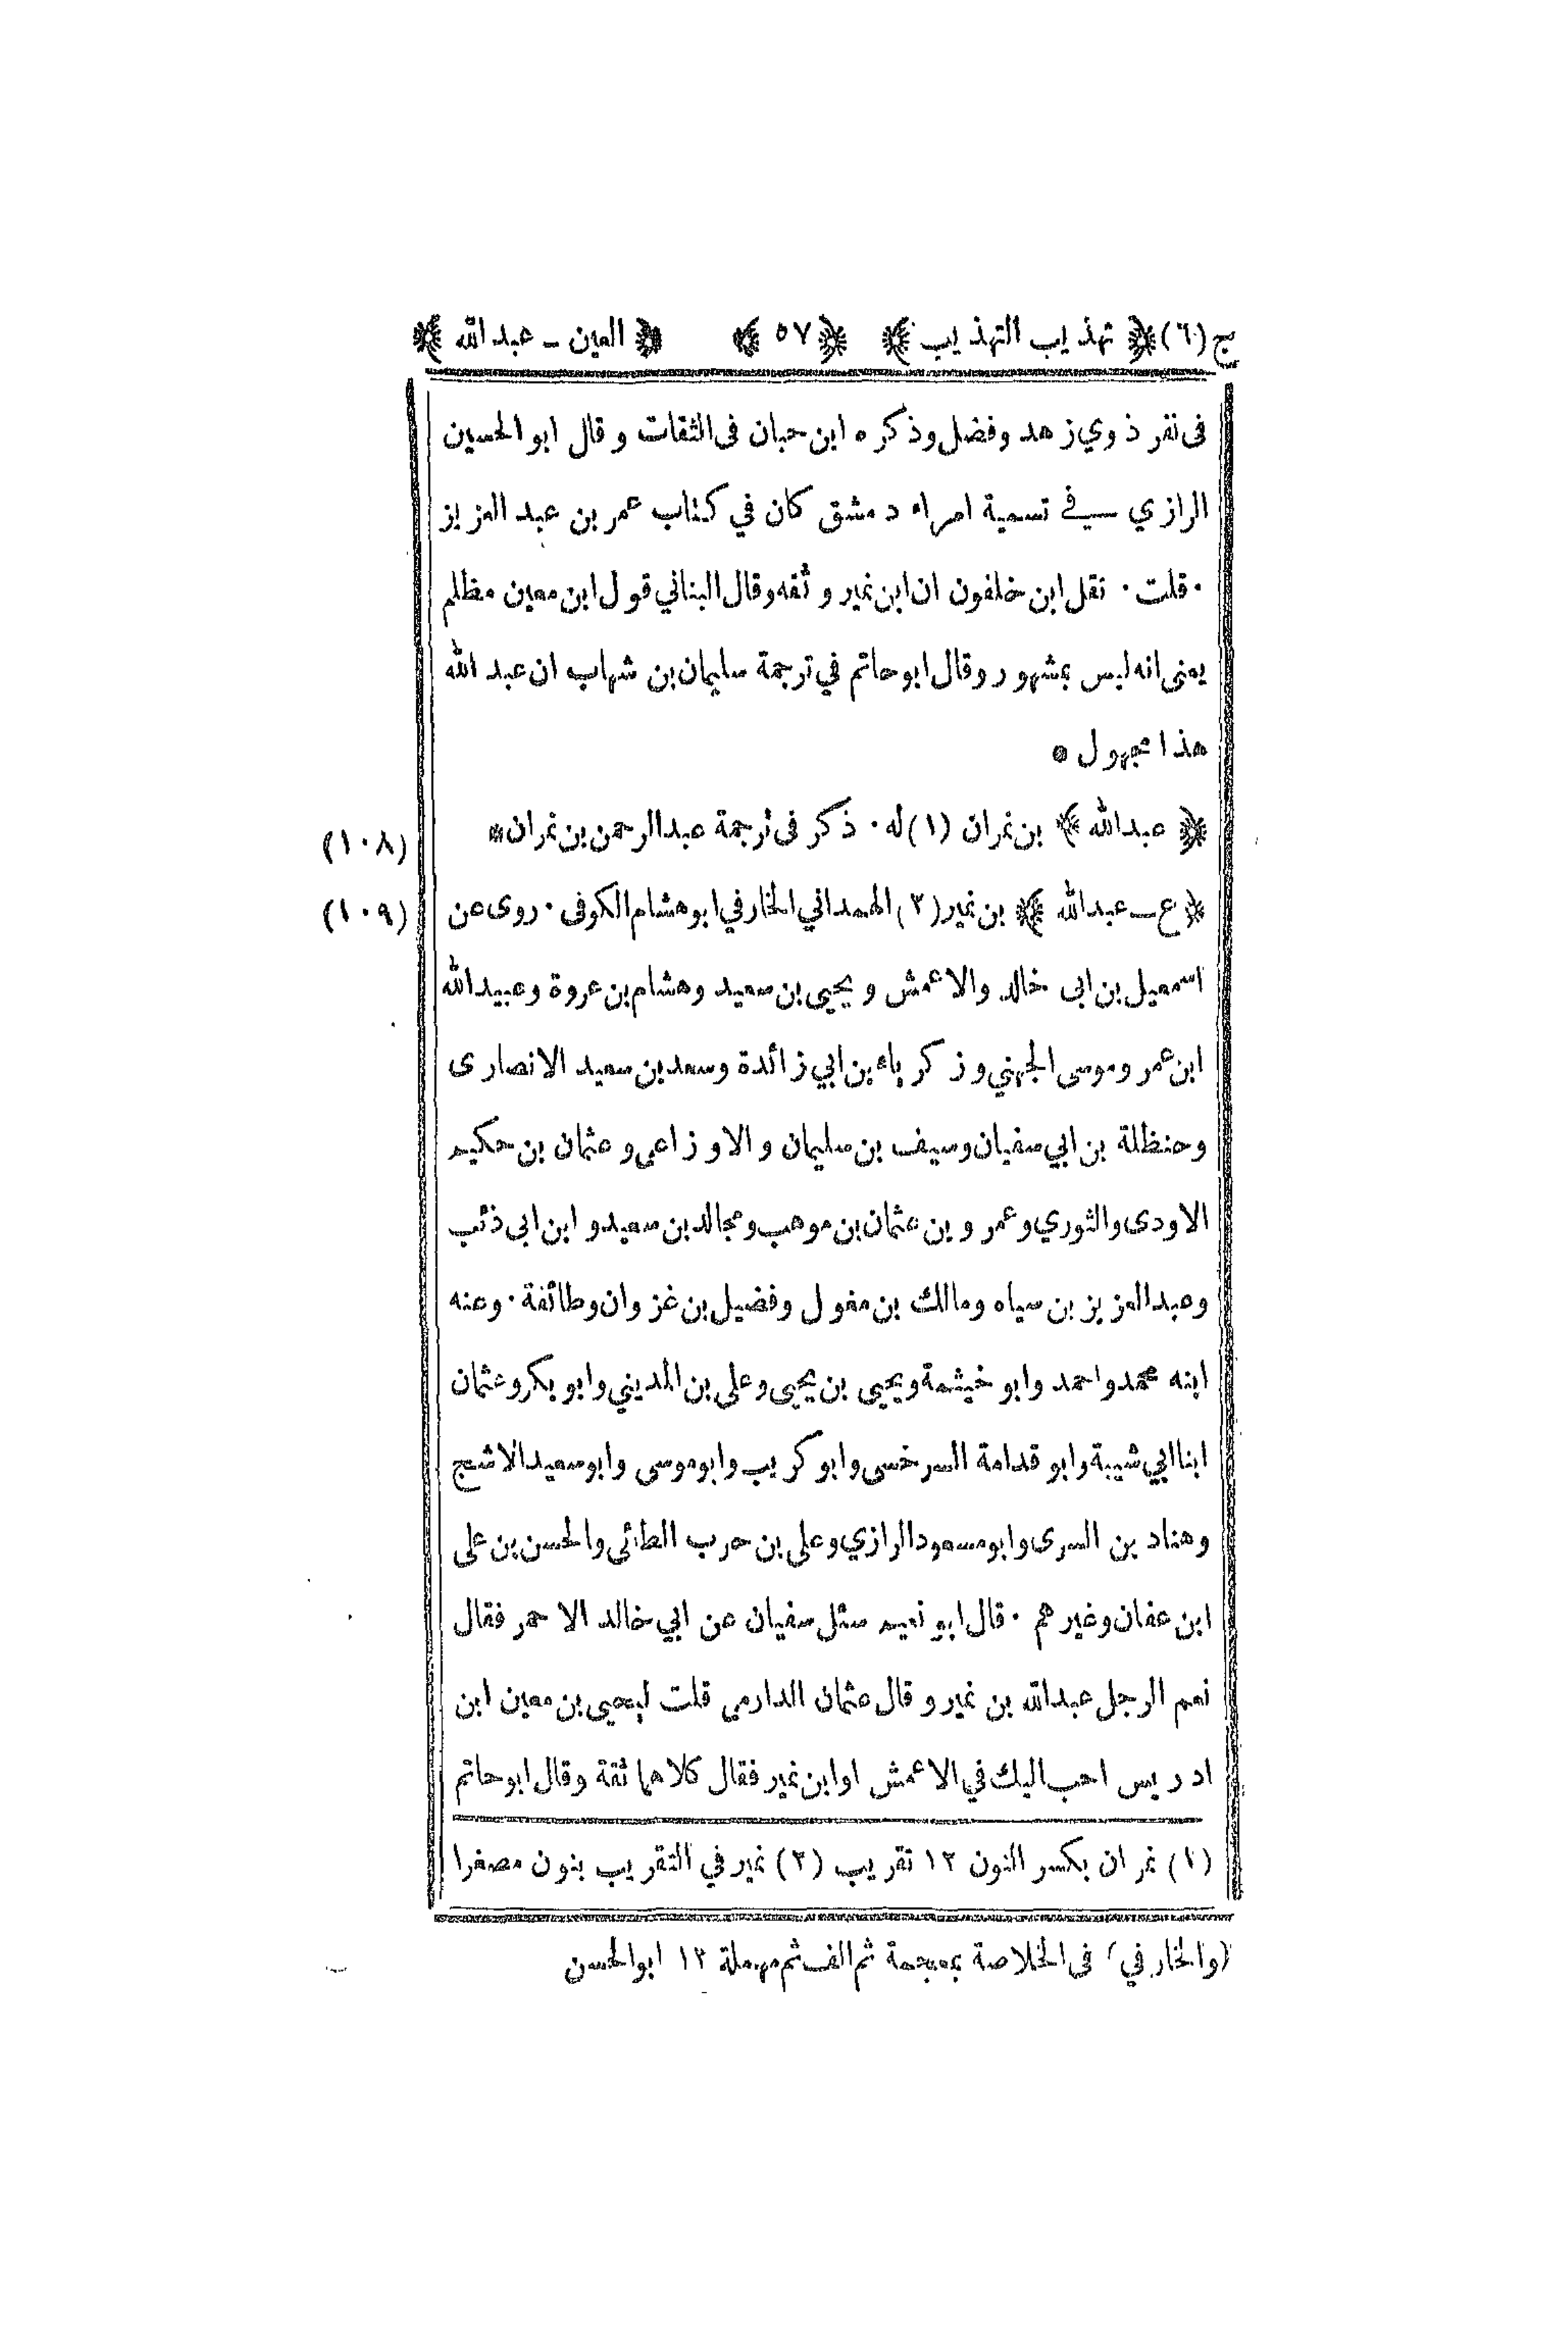 ج (٦) ﴿ تهذيب التهذيب ﴾ ﴿ ٥٧ ﴾ ﴿ العين ـ عبد الله ﴾
فى نفر ذوي زهد وفضل وذكره ابن حبان فى الثقات وقال ابو الحسين
الرازي في تسمية امراء دمشق كان في كتاب عمر بن عبد العزيز
· قلت · نقل ابن خلفون ان ابن نمير وثقه وقال البناني قول ابن معين مظلم
يعنى انه ليس بمشهور وقال ابو حاتم في ترجمة سليمان بن شهاب ان عبد الله
هذا مجهول *
﴿ عبد الله ﴾ بن نمران (١) له · ذكر فى ترجمة عبد الرحمن بن نمران * (١٠٨)
﴿ ع ـ عبد الله ﴾ بن نمير (٢) الهمداني الخارفي ابو هشام الكوفى · روى عن (١٠٩)
اسمعيل بن ابى خالد والاعمش ويحيى بن سعيد وهشام بن عروة وعبيد الله
ابن عمر وموسى الجهني وزكرياء بن ابي زائدة وسعد بن سعيد الانصارى
وحنظلة بن ابي سفيان وسيف بن سليمان والاوزاعى وعثمان بن حكيم
الاودى والثوري وعمرو بن عثمان بن موهب ومجالد بن سعيد وابن ابى ذئب
وعبد العزيز بن سياه ومالك بن مغول وفضيل بن غزوان وطائفة · وعنه
ابنه محمد واحمد وابو خيثمة ويحيى بن يحيى وعلى بن المديني وابو بكر وعثمان
ابنا ابي شيبة وابو قدامة السرخسى وابو كريب وابو موسى وابو سعيد الاشج
وهناد بن السرى وابو مسعود الرازي وعلى بن حرب الطائى والحسن بن على
ابن عفان وغيرهم · قال ابو نعيم سئل سفيان عن ابي خالد الاحمر فقال
نعم الرجل عبد الله بن نمير وقال عثمان الدارمي قلت ليحيى بن معين ابن
ادريس احب اليك في الاعمش او ابن نمير فقال كلاهما ثقة وقال ابو حاتم
(١) نمران بكسر النون ١٢ تقريب (٢) نمير في التقريب بنون مصغرا
(والخارفي) فى الخلاصة بمعجمة ثم الف ثم مهملة ١٢ ابو الحسن